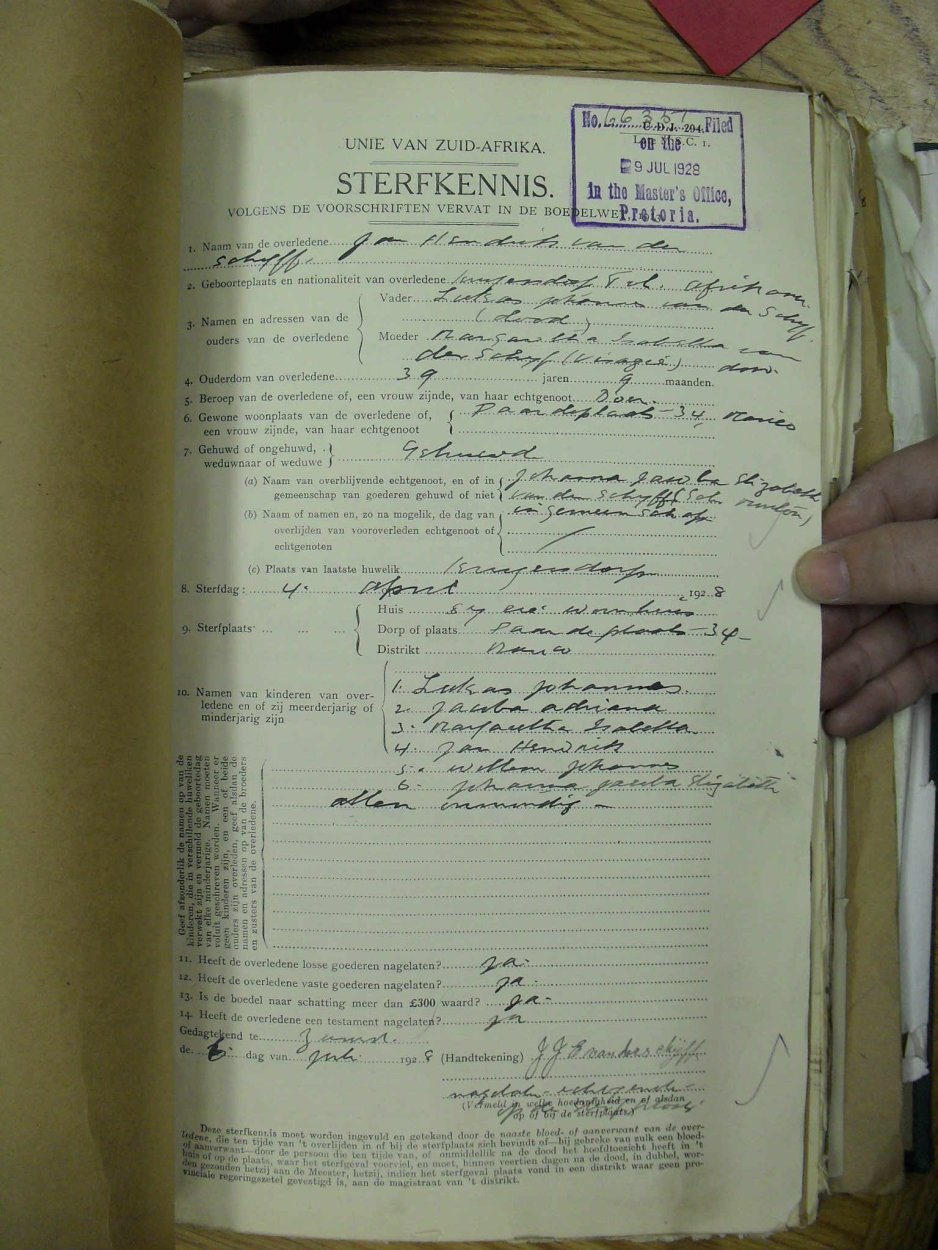 U.D.J. 294.
No. 66357 Filed
on the
9 JUL 1928
in the Master's Office,
Pretoria.
UNIE VAN ZUID-AFRIKA.
STERFKENNIS.
VOLGENS DE VOORSCHRIFTEN VERVAT IN DE BOEDELWET
1. Naam van de overledene Jan Hendrik van der
Schyff.
2. Geboorteplaats en nationaliteit van overledene Krugersdorp Tvl. Afrikaner
3. Namen en adressen van de ouders van de overledene
Vader Lukas Johannes van der Schyf
(dood)
Moeder Margaretha Isabella van
der Schyf (Visagie) dood
4. Ouderdom van overledene 39 jaren 9 maanden.
5. Beroep van de overledene of, een vrouw zijnde, van haar echtgenoot Boer.
6. Gewone woonplaats van de overledene of, Paardeplaats 34, Marico
een vrouw zijnde, van haar echtgenoot
7. Gehuwd of ongehuwd, Gehuwd
weduwnaar of weduwe
(a) Naam van overblijvende echtgenoot, en of in Johanna Jacoba Elizabeth
gemeenschap van goederen gehuwd of niet van der Schyff
in gemeenschap
(b) Naam of namen en, zo na mogelik, de dag van
overlijden van vooroverleden echtgenoot of
echtgenoten
(c) Plaats van laatste huwelik Krugersdorp
8. Sterfdag: 4. April 1928
9. Sterfplaats
Huis sy eie woonhuis
Dorp of plaats Paardeplaats 34
Distrikt Marico
10. Namen van kinderen van overledene en of zij meerderjarig of minderjarig zijn
1. Lukas Johannes
2. Jacoba Adriana
3. Margaretha Isabella
4. Jan Hendrik
5. Willem Johannes
6. Johanna Jacoba Elizabeth
allen onmondig
Geef afzonderlik de namen op van de
kinderen, die in verschillende huweliken
verwekt zijn en vermeld de geboortedag
van elke minderjarige. Namen moeten
voluit geschreven worden. Wanneer er
geen kinderen zijn, en een of beide
ouders zijn overleden, geef alsdan de
namen en adressen op van de broeders
en zusters van de overledene.
11. Heeft de overledene losse goederen nagelaten? Ja.
12. Heeft de overledene vaste goederen nagelaten? Ja.
13. Is de boedel naar schatting meer dan £300 waard? Ja.
14. Heeft de overledene een testament nagelaten? Ja
Gedagtekend te Zeerust.
de 6. dag van Juli 1928 (Handtekening) J J E van der Schyff
nagelaten echtgenote
(Vermeld in welke hoedanigheid en of alsdan
op of bij de sterfplaats)
Deze sterfkennis moet worden ingevuld en getekend door de naaste bloed- of aanverwant van de over-
ledene, die ten tijde van 't overlijden in of bij de sterfplaats zich bevindt of—bij gebreke van zulk een bloed-
of aanverwant—door de persoon die ten tijde van, of onmiddellik na de dood het hoofdtoezicht heeft in 't
huis of op de plaats, waar het sterfgeval voorviel, en moet, binnen veertien dagen na de dood, in dubbel, wor-
den gezonden hetzij aan de Meester, hetzij, indien het sterfgeval plaats vond in een distrikt waar geen pro-
vinciale regeringszetel gevestigd is, aan de magistraat van 't distrikt.